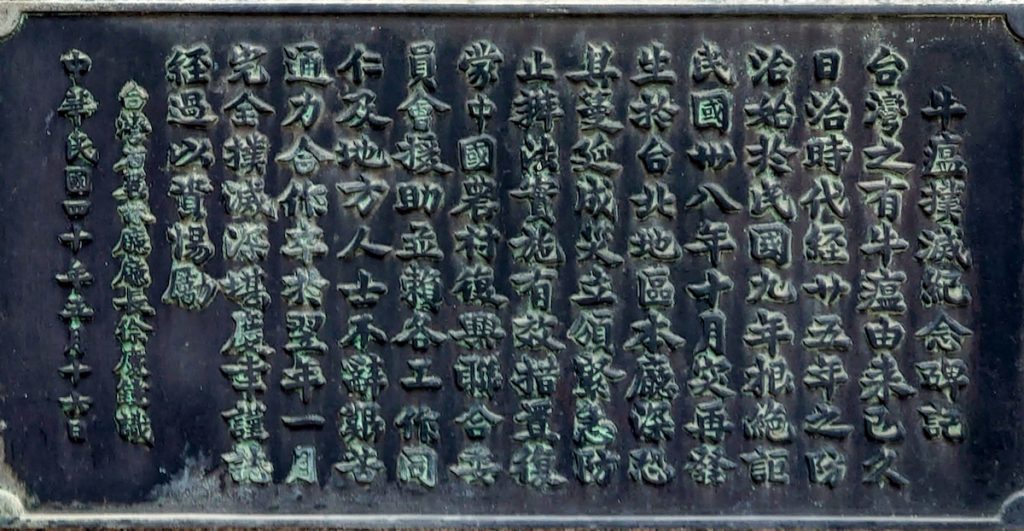 牛瘟撲滅紀念碑記
台灣之有牛瘟由來已久
日治時代経廿五年之防
治始於民國九年根絶詎
民國卅八年十月突再發
生於台北地區本廳深恐
其蔓延成災立頒緊急防
止辦法實施有效措置復
蒙中國農村復興聯合委
員會援助並賴各工作同
仁及地方人士不辭艱苦
通力合作幸於翌年一月
完全撲滅深堪慶幸謹誌
経過以資惕勵
台灣省農林廳廳長徐慶鐘識
中華民國四十年五月十六日